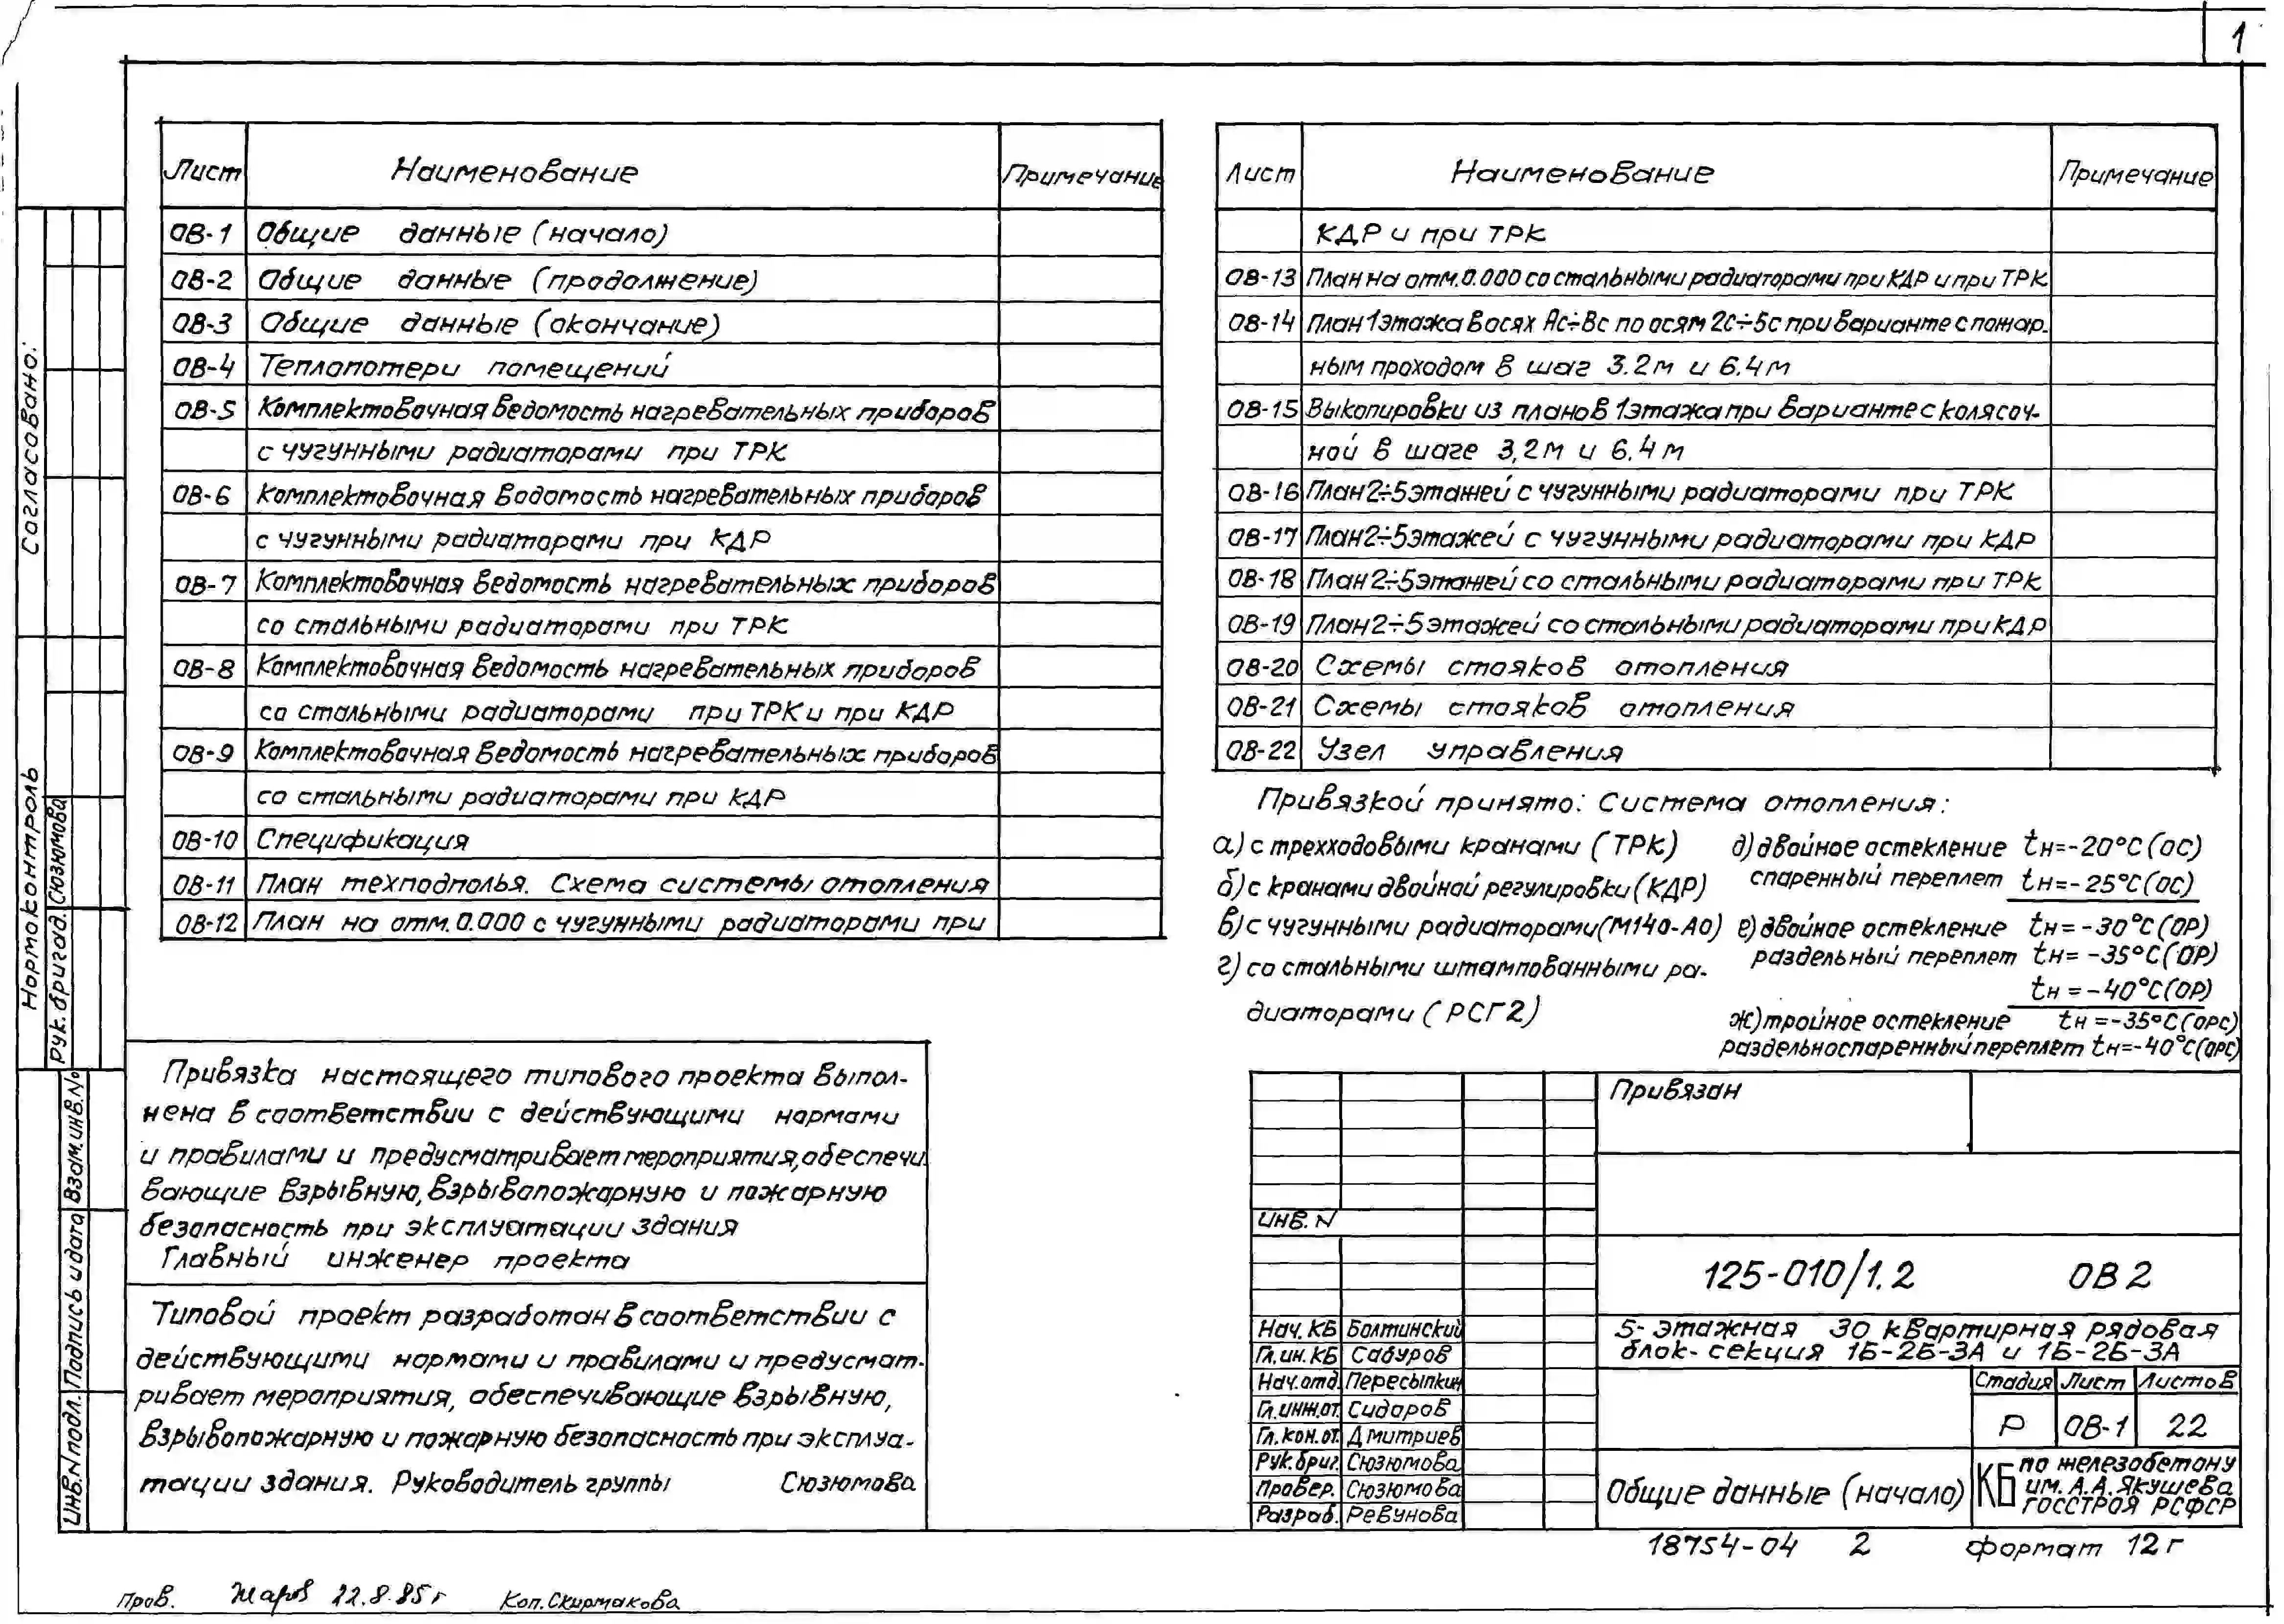 1
Лист Наименование Примечание
ОВ-1 Общие данные (начало)
ОВ-2 Общие данные (продолжение)
ОВ-3 Общие данные (окончание)
ОВ-4 Теплопотери помещений
ОВ-5 Комплектовочная ведомость нагревательных приборов
с чугунными радиаторами при ТРК
ОВ-6 Комплектовочная водомость нагревательных приборов
с чугунными радиаторами при КДР
ОВ-7 Комплектовочная ведомость нагревательных приборов
со стальными радиаторами при ТРК
ОВ-8 Комплектовочная ведомость нагревательных приборов
со стальными радиаторами при ТРК и при КДР
ОВ-9 Комплектовочная ведомость нагревательных приборов
со стальными радиаторами при КДР
ОВ-10 Спецификация
ОВ-11 План техподполья. Схема системы отопления
ОВ-12 План на отм. 0.000 с чугунными радиаторами при
Лист Наименование Примечание
КДР и при ТРК
ОВ-13 План на отм. 0.000 со стальными радиаторами при КДР и при ТРК
ОВ-14 План 1этажа в осях Ас÷Вс по осям 2с÷5с при варианте с пожар-
ным проходом в шаг 3.2м и 6.4м
ОВ-15 Выкопировки из планов 1этажа при варианте с колясоч-
ной в шаге 3,2м и 6.4м
ОВ-16 План 2÷5этажей с чугунными радиаторами при ТРК
ОВ-17 План 2÷5этажей с чугунными радиаторами при КДР
ОВ-18 План 2÷5этажей со стальными радиаторами при ТРК
ОВ-19 План 2÷5этажей со стальными радиаторами при КДР
ОВ-20 Схемы стояков отопления
ОВ-21 Схемы стояков отопления
ОВ-22 Узел управления
Привязкой принято: Система отопления:
а) с трехходовыми кранами (ТРК)
б) с кранами двойной регулировки (КДР)
в) с чугунными радиаторами (М140-АО)
г) со стальными штампованными ра-
диаторами (РСГ2)
д) двойное остекление tн=-20°С (ОС)
спаренный переплет tн=-25°С (ОС)
е) двойное остекление tн=-30°С (ОР)
раздельный переплет tн=-35°С (ОР)
tн=-40°С (ОР)
ж) тройное остекление tн=-35°С (ОРС)
раздельноспаренный переплет tн=-40°С (ОРС)
Привязка настоящего типового проекта выпол-
нена в соответствии с действующими нормами
и правилами и предусматривает мероприятия, обеспечи-
вающие взрывную, взрывопожарную и пожарную
безопасность при эксплуатации здания
Главный инженер проекта
Типовой проект разработан в соответствии с
действующими нормами и правилами и предусмат-
ривает мероприятия, обеспечивающие взрывную,
взрывопожарную и пожарную безопасность при эксплуа-
тации здания. Руководитель группы Сюзюмова
Согласовано:
Нормоконтроль
Рук. бригад. Сюзюмова
Взам.инв.№
Подпись и дата
Инв.N подл.
Привязан
Инв. N
125-010/1.2 ОВ2
Нач. КБ Болтинский
Гл.ин. КБ Сабуров
Нач.отд. Пересыпкин
Гл.инж.от. Сидоров
Гл.кон.от. Дмитриев
Рук.бриг. Сюзюмова
Провер. Сюзюмова
Разраб. Ревунова
5-этажная 30 квартирная рядовая
блок-секция 1Б-2Б-3А и 1Б-2Б-3А
Стадия Лист Листов
Р ОВ-1 22
Общие данные (начало)
КБ по железобетону
им. А.А. Якушева
ГОССТРОЯ РСФСР
18754-04 2 формат 12г
Пров. Жаров 22.8.85г Коп. Скирмакова